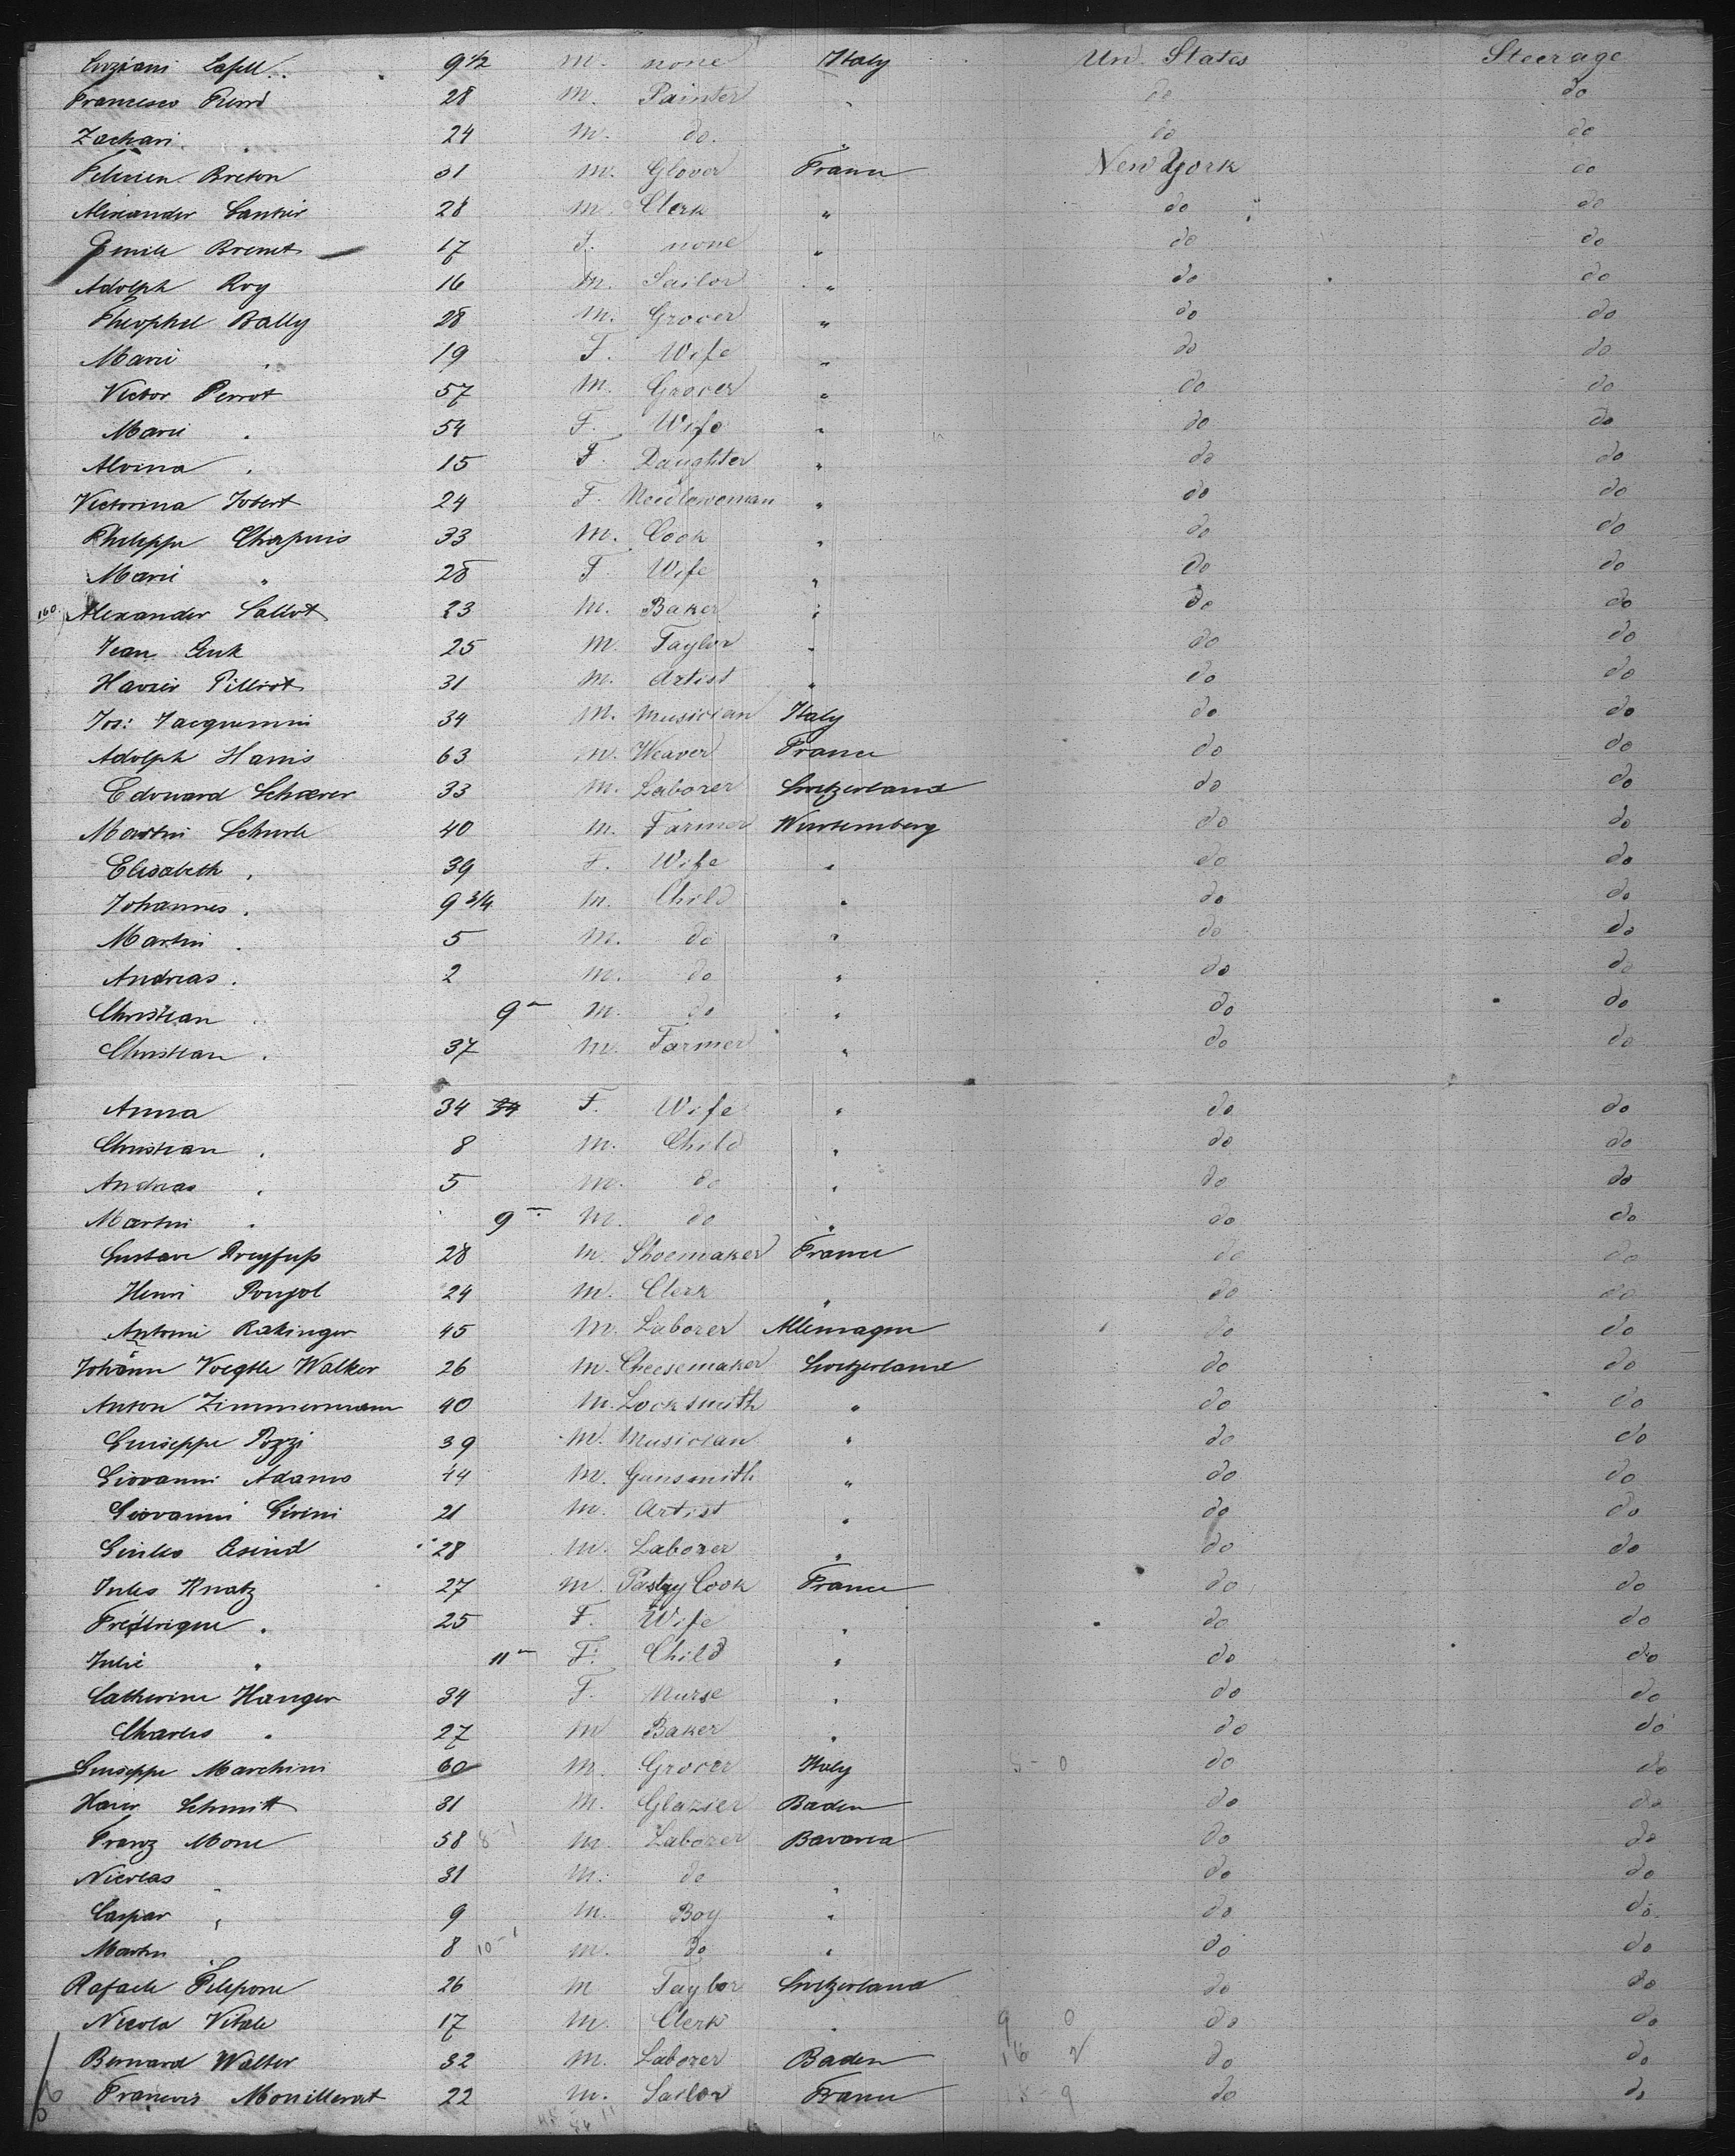 Luziani Lafell 9 1/2 M. none Italy Un. States Steerage
Francesco Pierri 28 M. Painter " do do
Zachari " 24 M. do. " do do
Felicien Breton 31 M. Glover France New York do
Alexander Lantier 28 M. Clerk " do do
Emile Brenet 17 F. none " do do
Adolph Roy 16 M. Sailor " do do
Theophel Bally 28 M. Grocer " do do
Marie " 19 F. Wife " do do
Victor Perrot 57 M. Grocer " do do
Marie " 54 F. Wife " do do
Alvina " 15 F. Daughter " do do
Victorina Jobert 24 F. Needlewoman " do do
Philippe Chapuis 33 M. Cook " do do
Marie " 28 F. Wife " do do
160. Alexander Sallot 23 M. Baker " do do
Jean 25 M. Taylor " do do
Havier Pilliot 31 M. Artist " do do
Jos: Jacquemin 34 M. Musician Italy do do
Adolph Harris 63 M. Weaver France do do
Edouard Scherer 33 M. Laborer Switzerland do do
Martin Schurle 40 M. Farmer Wurtemberg do do
Elisabeth " 39 F. Wife " do do
Johannes " 9 3/4 M. Child " do do
Martin " 5 M. do " do do
Andreas " 2 M. do " do do
Christian " 9 m M. do " do do
Christian " 37 M. Farmer " do do
Anna 34 34 F. Wife " do do
Christian " 8 M. Child " do do
Andreas " 5 M. do " do do
Martin " 9 m M. do " do do
Gustave Dreyfuss 28 M. Shoemaker France do do
Henri Ponyol 24 M. Clerk " do do
Antoni Rakinger 45 M. Laborer Allemagne do do
Johann Voegtle Walker 26 M. Cheesemaker Switzerland do do
Anton Zimmermann 40 M. Locksmith " do do
Guiseppe Pozzi 39 M. Musician " do do
Giovanni Adamo 44 M. Gunsmith " do do
Giovanni Girini 21 M. Artist " do do
Giulio 28 M. Laborer " do do
Jules Knatz 27 M. Pastry Cook France do do
Fredrique " 25 F. Wife " do do
Julie " 11 m F. Child " do do
Catherine Hanger 34 F. Nurse " do do
Charles " 27 M Baker " do do
Guiseppe Marchini 60 M. Grocer Italy 5-0 do do
Haver Schmitt 31 M. Glazier Baden do do
Franz Mone 58 8-1 M. Laborer Bavaria do do
Nicolas " 31 M. do " do do
Caspar " 9 M. Boy " do do
Martin 8 10-1 M. do " do do
Rafaele Pilepone 26 M Taylor Switzerland do do
Nicola Vitale 17 M. Clerk " 9 0 do do
Bernard Walter 32 M. Laborer Baden 16 2 do do
Francois Mouillerat 22 M. Sailor France 18-9 do do